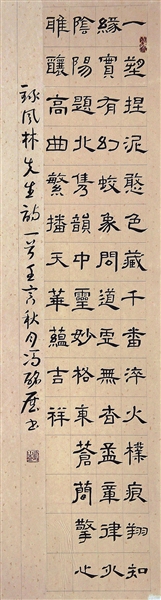 一塑捏泥憨色藏千番淬火樸痕翔知
緣實有幻蛟象問道無杳孟章律火
陰陽題北雋韻中靈妙格東蒼簡擎心
雎釀高曲繁播天華蘊吉祥
風林先生詩一首壬寅秋月馮書